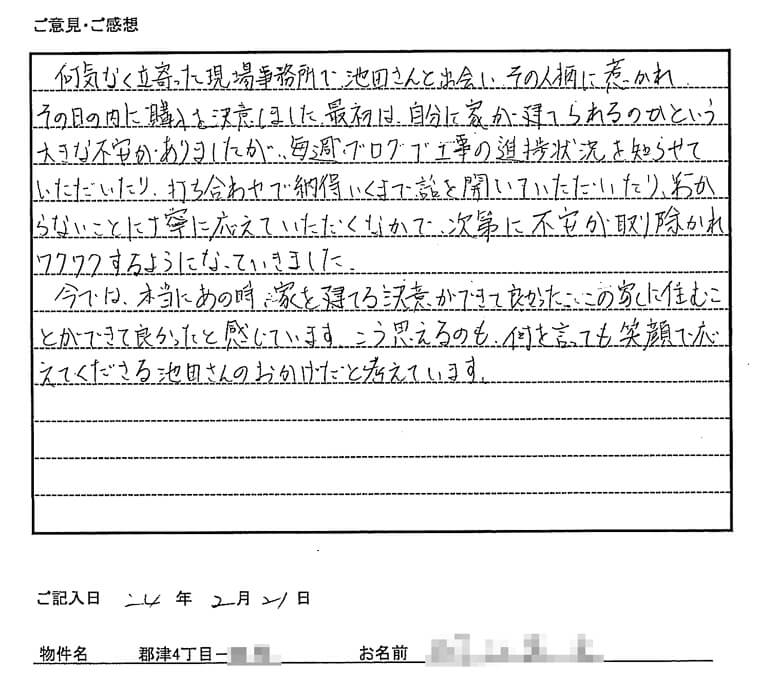 ご意見・ご感想
何気なく立寄った現場事務所で、池田さんと出会い、その人柄に惹かれ
その日の内に購入を決意しました。最初は、自分に家が建てられるのかという
大きな不安がありましたが、毎週ブログで工事の進捗状況を知らせて
いただいたり、打ち合わせで納得いくまで話を聞いていただいたり、わか
らないことに丁寧に応えていただくなかで、次第に不安が取り除かれ
ワクワクするようになっていきました。
今では、本当にあの時、家を建てる決意ができて良かった、この家に住むこ
とができて良かったと感じています。こう思えるのも、何を言っても笑顔で応
えてくださる池田さんのおかげだと考えています。
ご記入日 24 年 2月 21日
物件名 郡津4丁目ー お名前